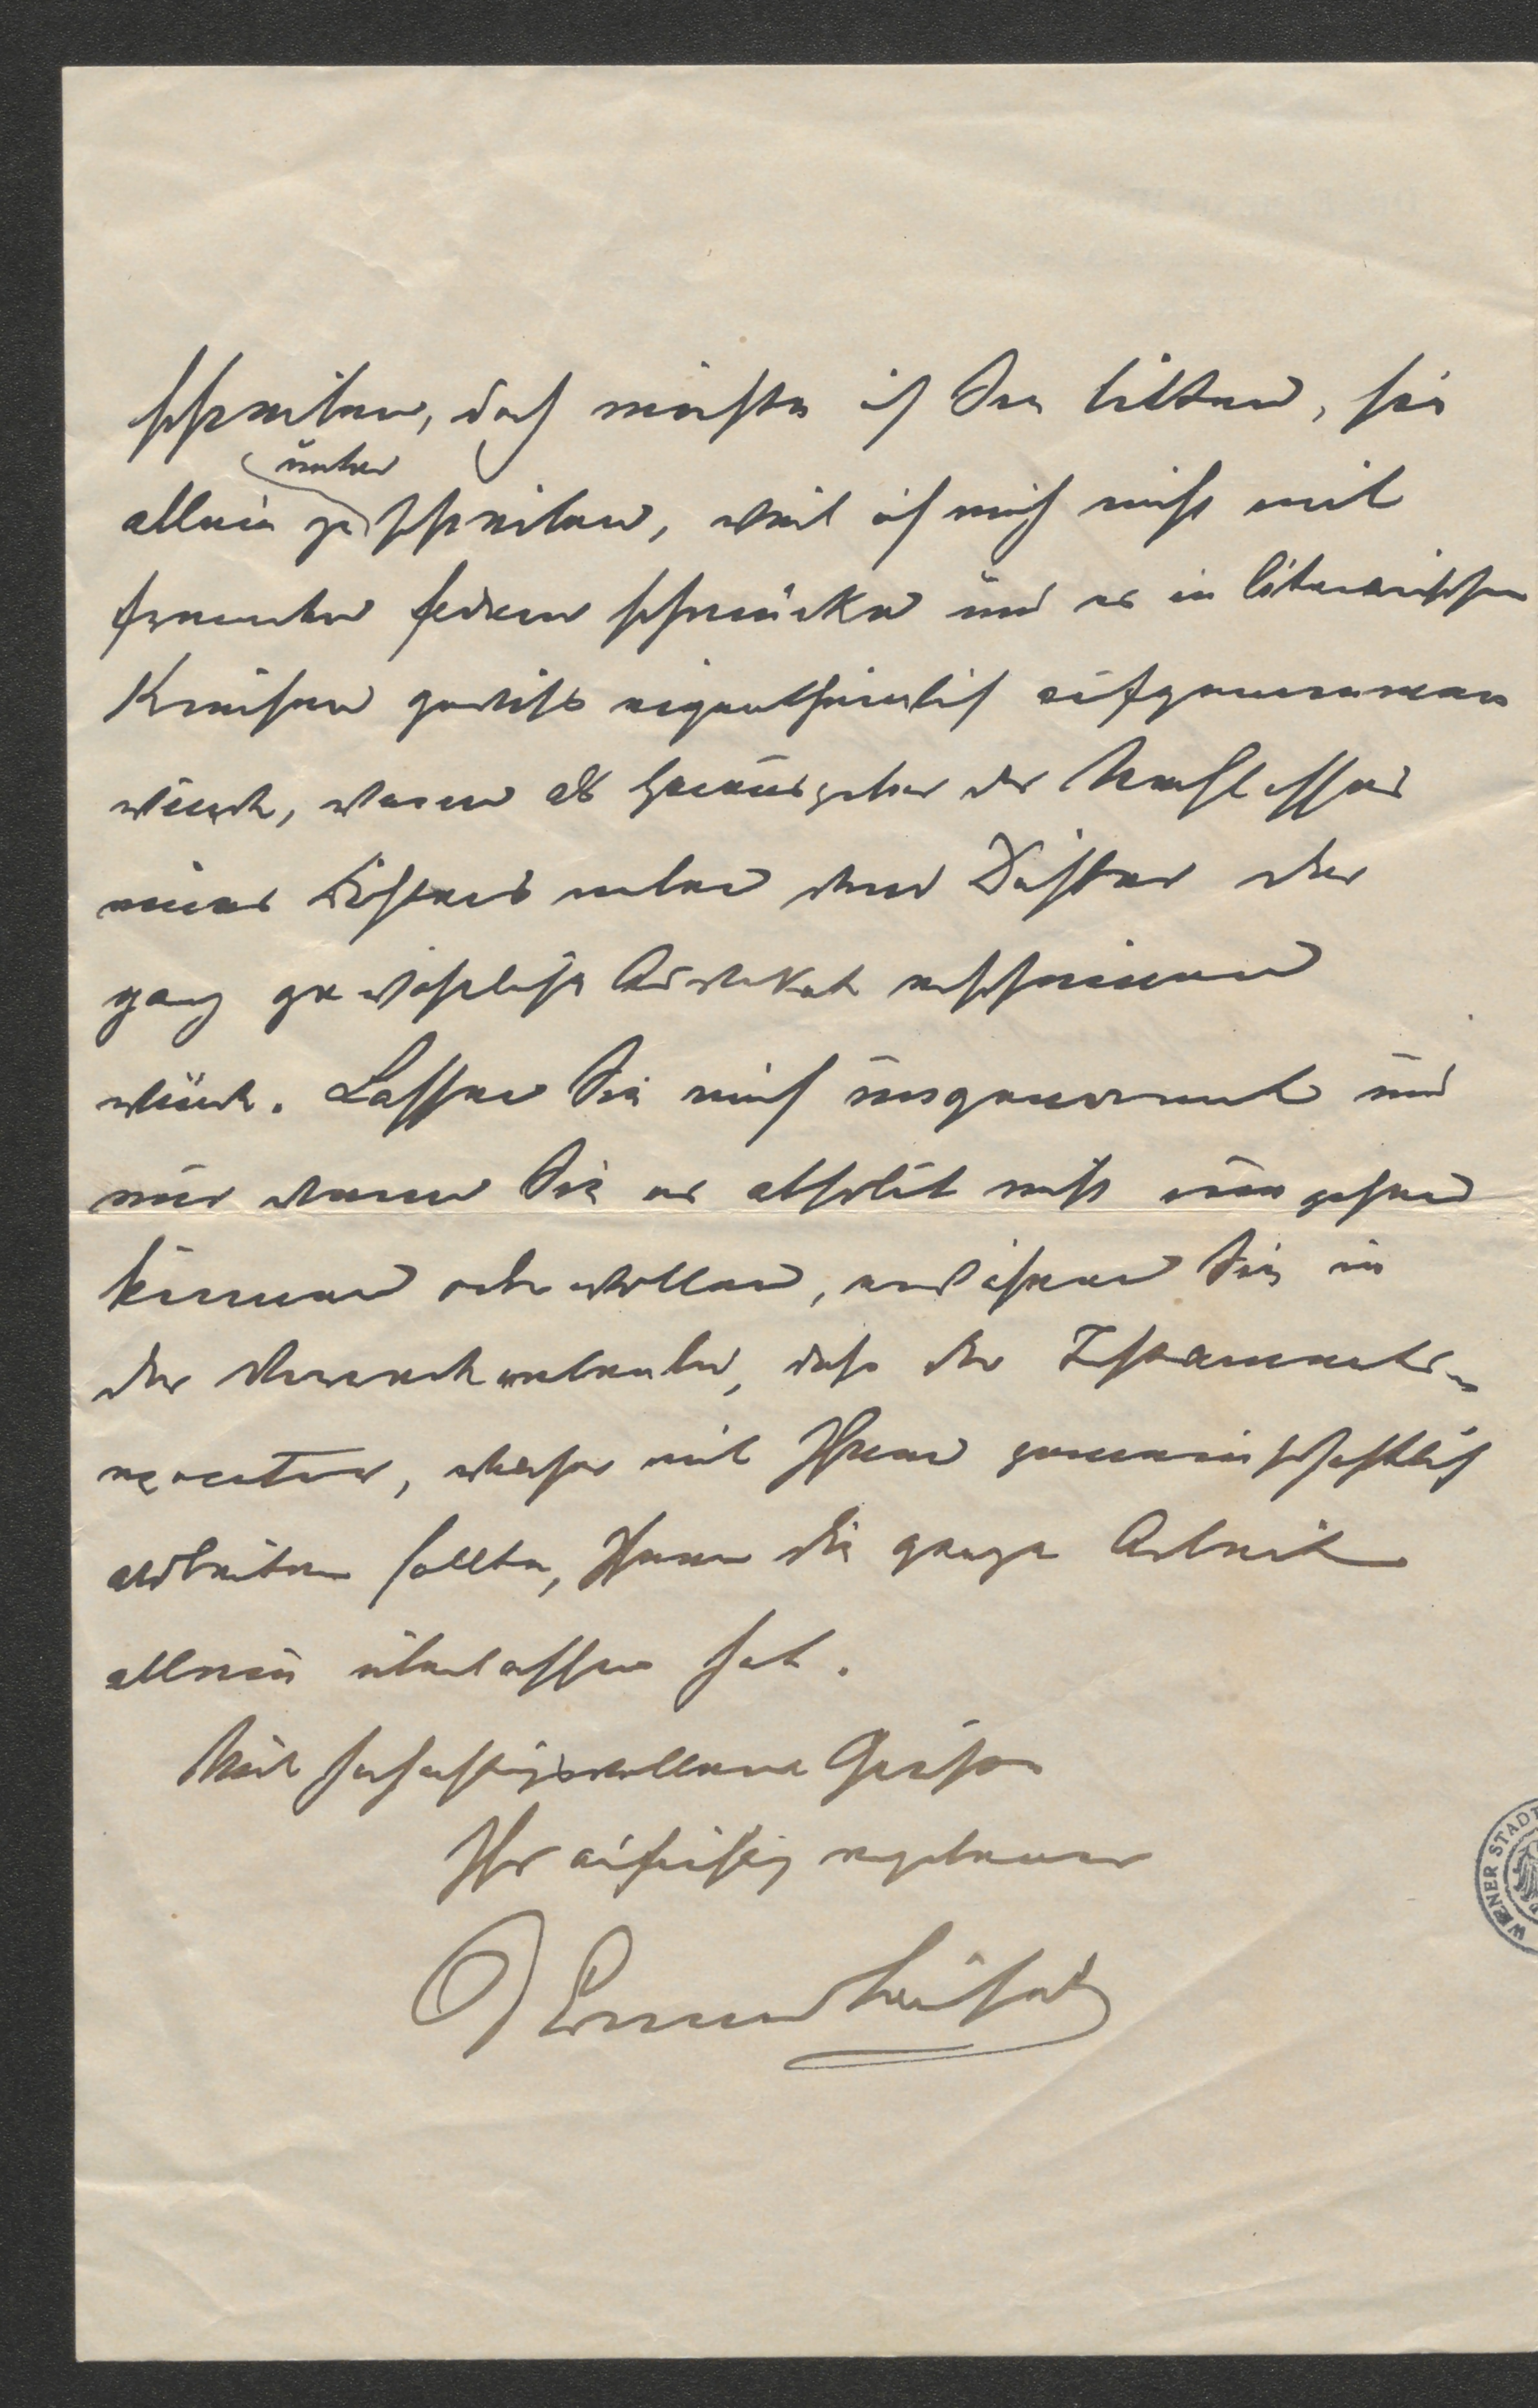 schreiben, doch möchte ich Sie bitten, sie
allein zu unterschreiben, weil ich mich nicht mit
fremden Federn schmücken und es in literarischen
Kreisen gewiss eigenthümlich aufgenommen
würde, wenn als Herausgeber der Nachlasses
eines Dichters neben dem Dichter der
ganz gewöhnliche Advokat erscheinen
würde. Lassen Sie mich ungenannt und
nur wenn Sie es absolut nicht umgehen
können oder wollen, erwähnen Sie in
der Vorrede, dass der Testaments-
executor, welcher mit Ihnen gemeinschaftlich
arbeiten sollte, Ihnen die ganze Arbeit
allein überlassen hat.
Mit hochachtungsvollem Grusse
Ihr aufrichtig ergebener
WIENER STADT